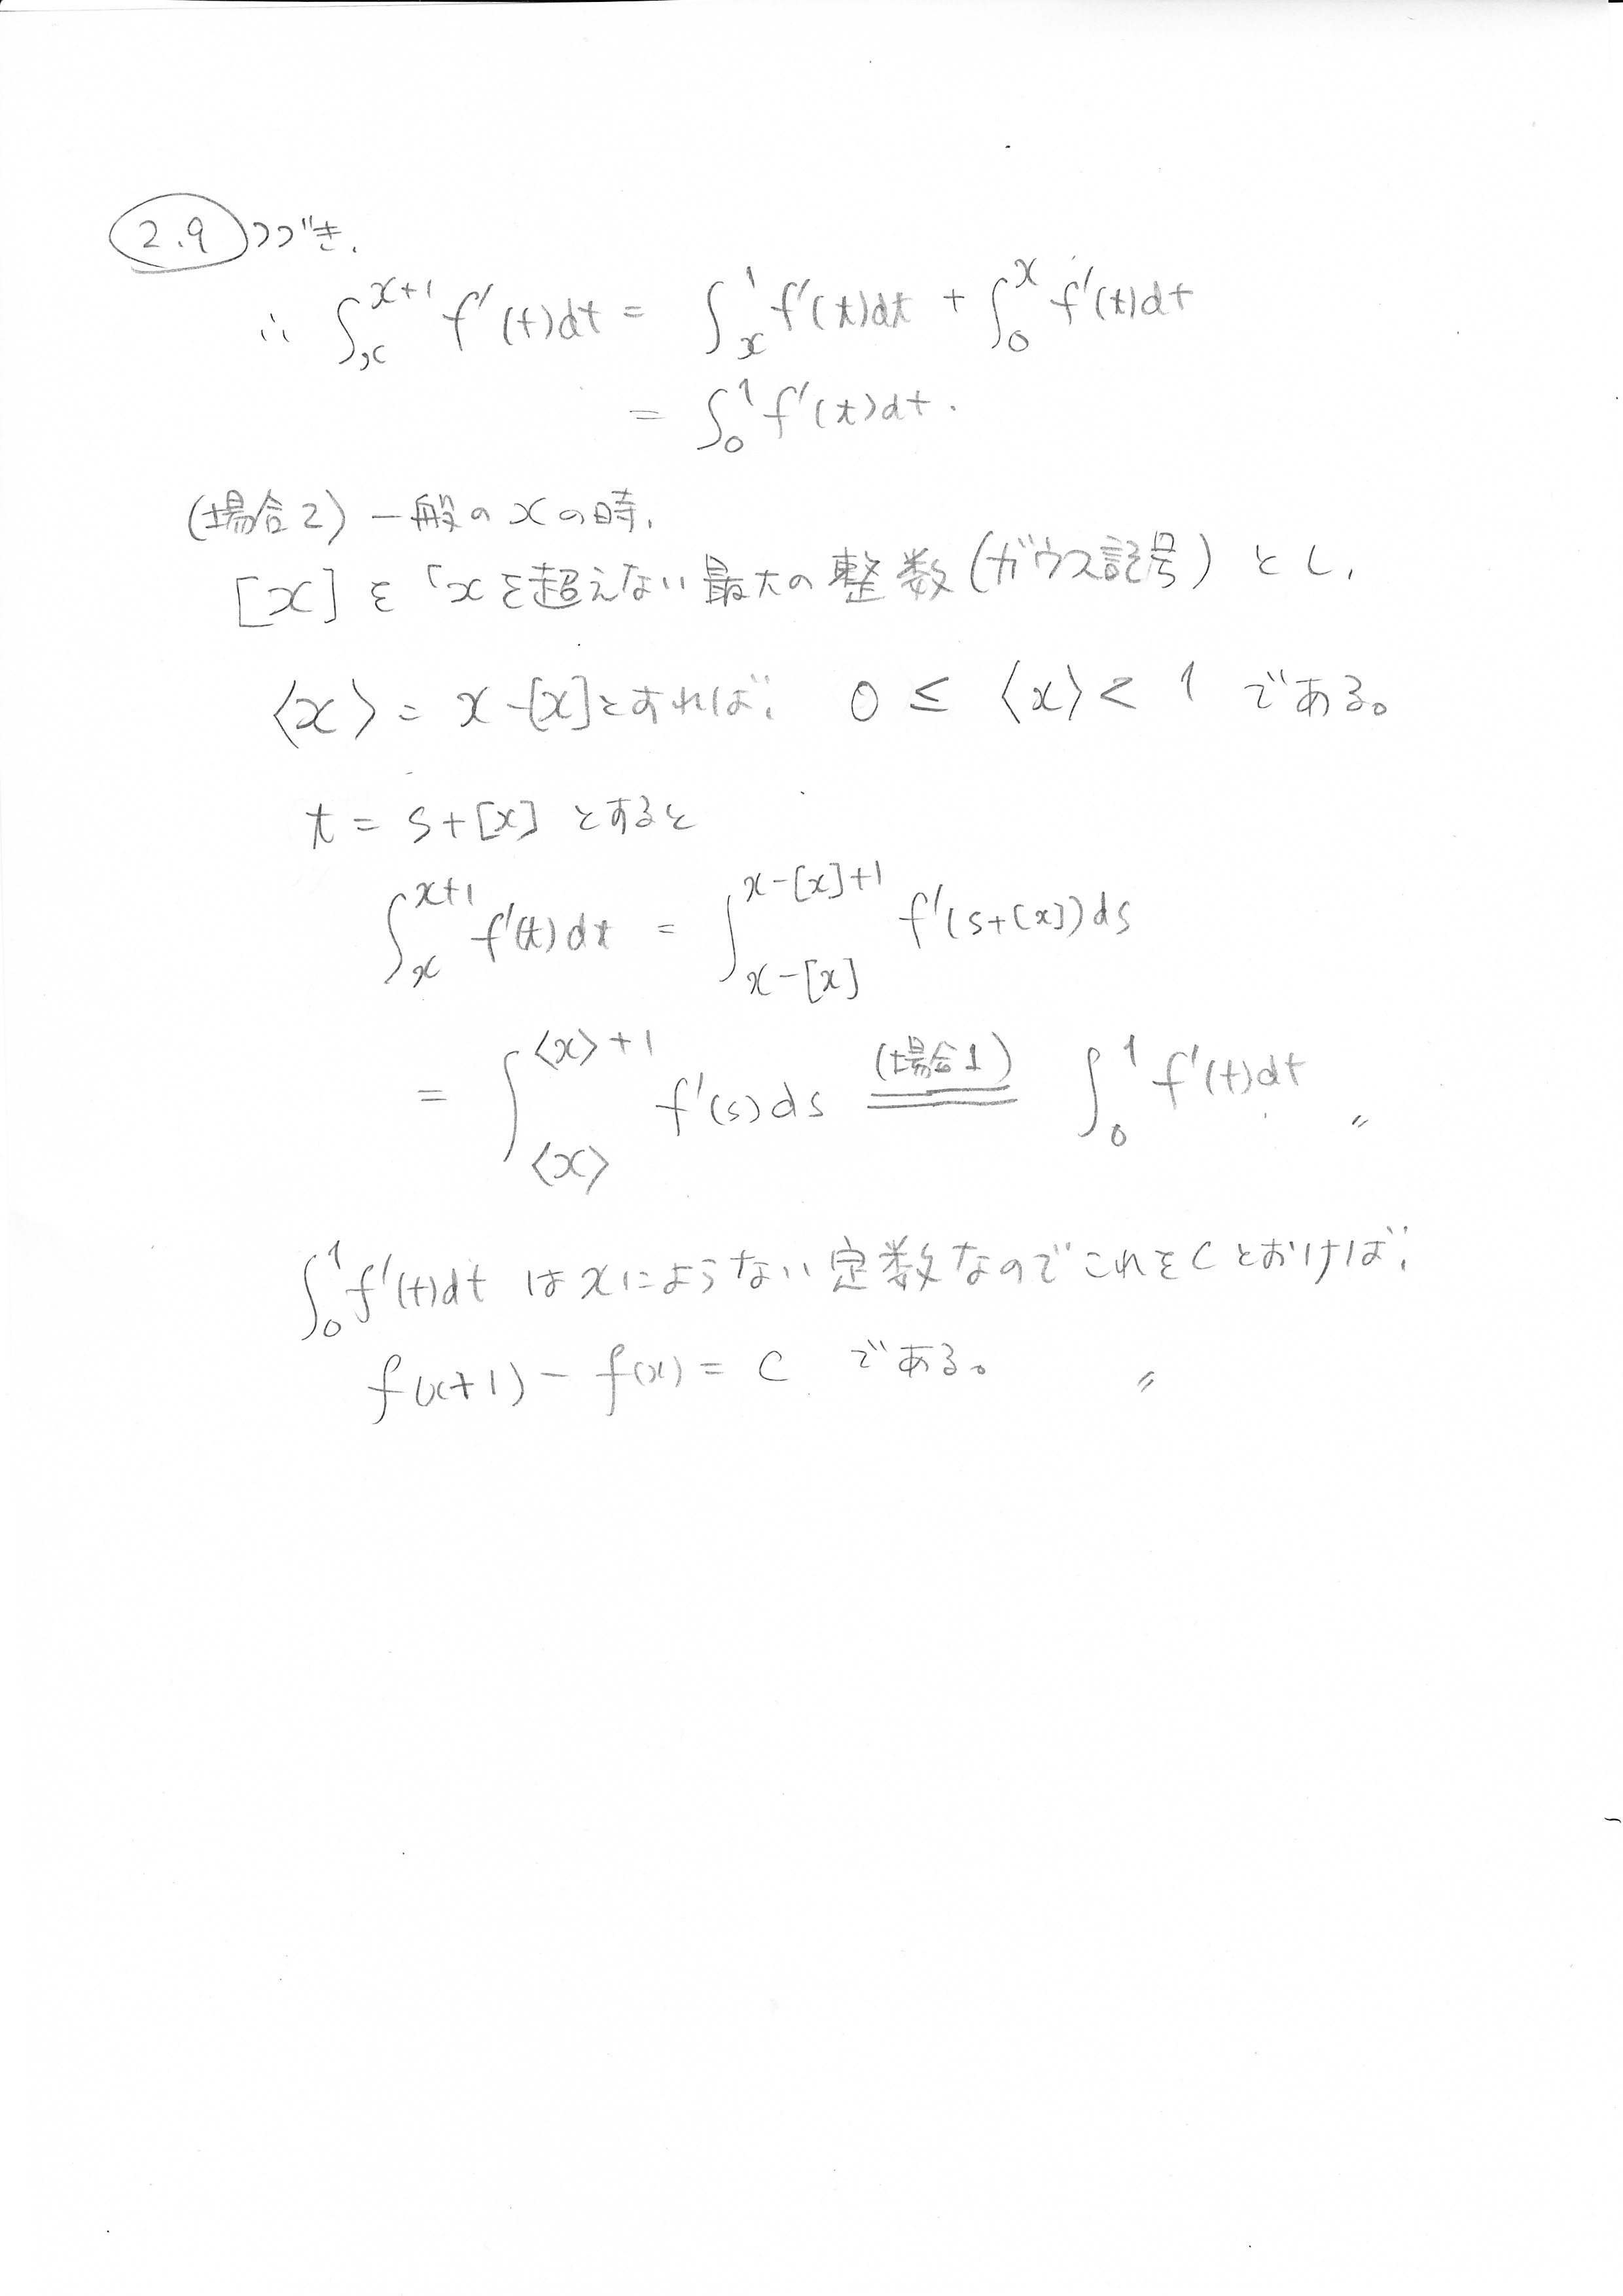 2.9 つづき.
∴ ∫_x^{x+1} f'(t)dt = ∫_x^1 f'(t)dt + ∫_0^x f'(t)dt
= ∫_0^1 f'(t)dt.
(場合2) 一般の x の時,
[x] を「xを超えない最大の整数(ガウス記号) とし,
〈x〉 = x-[x]とすれば, 0 ≤ 〈x〉 < 1 である。
t = s+[x] とすると
∫_x^{x+1} f'(t)dt = ∫_{x-[x]}^{x-[x]+1} f'(s+[x])ds
= ∫_{〈x〉}^{〈x〉+1} f'(s)ds =(場合1) ∫_0^1 f'(t)dt 〃
∫_0^1 f'(t)dt はxによらない定数なのでこれをCとおけば,
f(x+1) - f(x) = C である。 〃